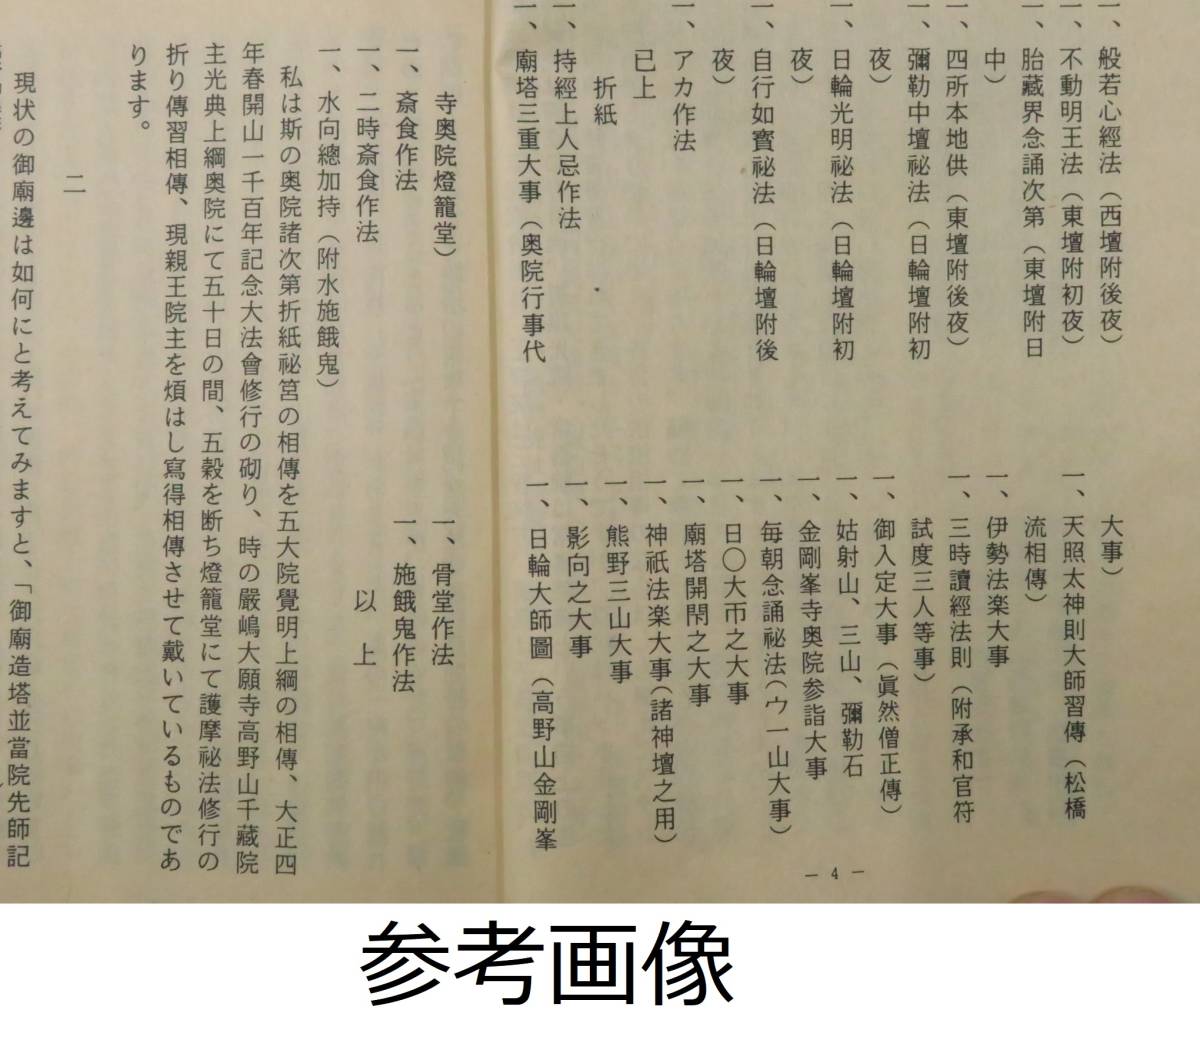 一、般若心經法（西壇附後夜）
一、不動明王法（東壇附初夜）
一、胎藏界念誦次第（東壇附日
中）
一、四所本地供（東壇附後夜）
一、彌勒中壇祕法（日輪壇附初
夜）
一、日輪光明祕法（日輪壇附初
夜）
一、自行如寳祕法（日輪壇附後
夜）
一、アカ作法
已上
折紙
一、持經上人忌作法
一、廟塔三重大事（奥院行事代
大事）
一、天照太神則大師習傳（松橋
流相傳）
一、伊勢法楽大事
一、三時讀經法則（附承和官符
試度三人等事）
一、御入定大事（眞然僧正傳）
一、姑射山、三山、彌勒石
一、金剛峯寺奥院参詣大事
一、毎朝念誦祕法（ウ一山大事）
一、日〇大帀之大事
一、廟塔開閇之大事
一、神祇法楽大事（諸神壇之用）
一、熊野三山大事
一、影向之大事
一、日輪大師圖（高野山金剛峯
— 4 —
寺奥院燈籠堂）
一、斎食作法
一、二時斎食作法
一、水向總加持（附水施餓鬼）
一、骨堂作法
一、施餓鬼作法
以上
私は斯の奥院諸次第折紙祕筥の相傳を五大院覺明上綱の相傳、大正四
年春開山一千百年記念大法會修行の砌り、時の嚴嶋大願寺高野山千藏院
主光典上綱奥院にて五十日の間、五穀を断ち燈籠堂にて護摩祕法修行の
折り傳習相傳、現親王院主を煩はし寫得相傳させて戴いているものであ
ります。
二
現状の御廟邊は如何にと考えてみますと、「御廟造塔並當院先師記
参考画像